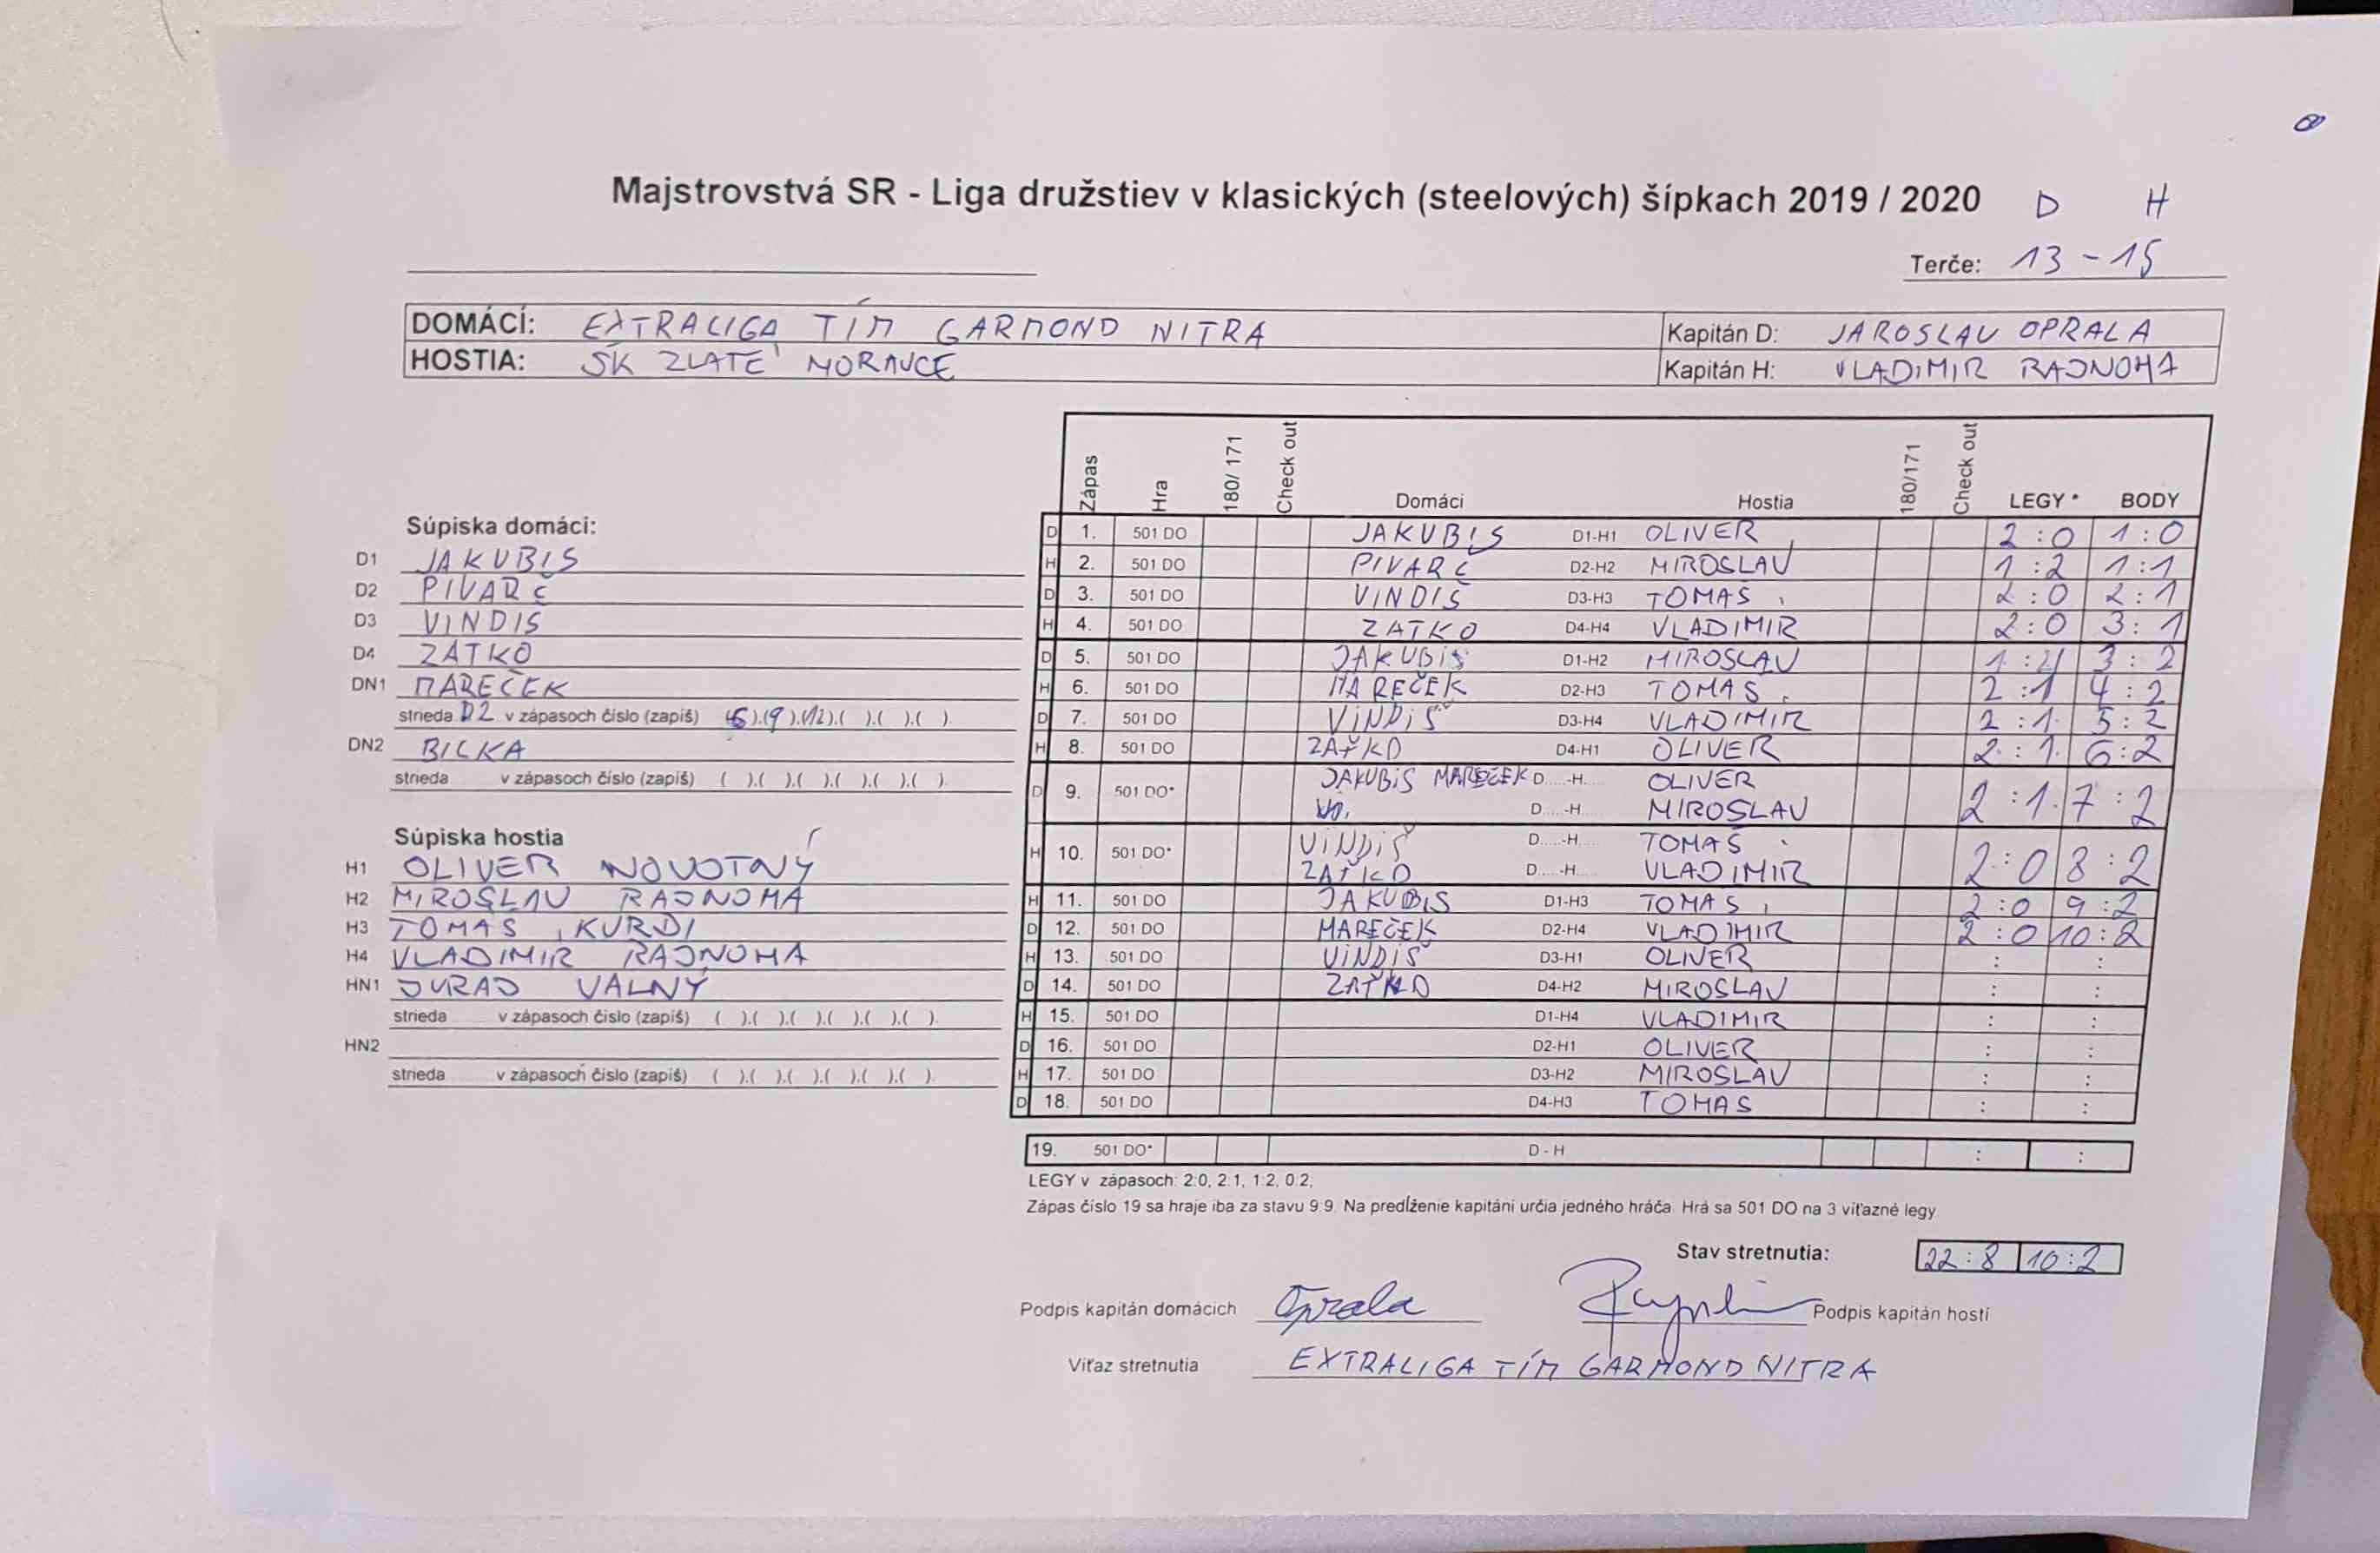 Majstrovstvá SR - Liga družstiev v klasických (steelových) šípkach 2019 / 2020 D H
Terče: 13 - 15
DOMÁCÍ: EXTRALIGA TÍM GARMOND NITRA Kapitán D: JAROSLAV OPRALA
HOSTIA: ŠK ZLATÉ MORAVCE Kapitán H: VLADIMIR RAJNOHA
Zápas Hra 180/ 171 Check out Domáci Hostia 180/171 Check out LEGY * BODY
Súpiska domáci:
D1 JAKUBIS
D2 PIVARČ
D3 VINDIŠ
D4 ZÁTKO
DN1 MAREČEK
strieda D2 v zápasoch číslo (zapíš) (6).(9).(12).( ).( ).( ).
DN2 BILKA
strieda v zápasoch číslo (zapíš) ( ).( ).( ).( ).( ).( ).
Súpiska hostia
H1 OLIVER NOVOTNÝ
H2 MIROSLAV RAJNOHA
H3 TOMAS KURDI
H4 VLADIMIR RAJNOHA
HN1 JURAJ VALNÝ
strieda v zápasoch číslo (zapíš) ( ).( ).( ).( ).( ).( ).
HN2
strieda v zápasoch číslo (zapíš) ( ).( ).( ).( ).( ).( ).
D 1. 501 DO JAKUBIS D1-H1 OLIVER 2:0 1:0
H 2. 501 DO PIVARČ D2-H2 MIROSLAV 1:2 1:1
D 3. 501 DO VINDIŠ D3-H3 TOMAŠ 2:0 2:1
H 4. 501 DO ZATKO D4-H4 VLADIMIR 2:0 3:1
D 5. 501 DO JAKUBIS D1-H2 MIROSLAV 1:2 3:2
H 6. 501 DO MAREČEK D2-H3 TOMAS 2:1 4:2
D 7. 501 DO VINDIŠ D3-H4 VLADIMIR 2:1 5:2
H 8. 501 DO ZAŤKO D4-H1 OLIVER 2:1 6:2
D 9. 501 DO* JAKUBIS MAREČEK D.....-H..... OLIVER 2:1 7:2
D.....-H..... MIROSLAV
H 10. 501 DO* VINDIŠ D.....-H..... TOMAŠ 2:0 8:2
ZAŤKO D.....-H..... VLADIMIR
H 11. 501 DO JAKUBIS D1-H3 TOMAS 2:0 9:2
D 12. 501 DO MAREČEK D2-H4 VLADIMIR 2:0 10:2
H 13. 501 DO VINDIŠ D3-H1 OLIVER : :
D 14. 501 DO ZAŤKO D4-H2 MIROSLAV : :
H 15. 501 DO D1-H4 VLADIMIR : :
D 16. 501 DO D2-H1 OLIVER : :
H 17. 501 DO D3-H2 MIROSLAV : :
D 18. 501 DO D4-H3 TOMAS : :
19. 501 DO* D - H : :
LEGY v zápasoch: 2:0, 2:1, 1:2, 0:2,
Zápas číslo 19 sa hraje iba za stavu 9:9. Na predĺženie kapitáni určia jedného hráča. Hrá sa 501 DO na 3 víťazné legy.
Stav stretnutia: 22:8 10:2
Podpis kapitán domácich Oprala Podpis kapitán hostí
Víťaz stretnutia EXTRALIGA TÍM GARMOND NITRA